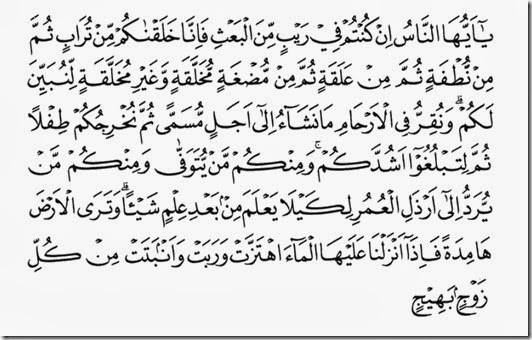 يٰٓاَيُّهَا النَّاسُ اِنْ كُنْتُمْ فِيْ رَيْبٍ مِّنَ الْبَعْثِ فَاِنَّا خَلَقْنٰكُمْ مِّنْ تُرَابٍ ثُمَّ
مِنْ نُّطْفَةٍ ثُمَّ مِنْ عَلَقَةٍ ثُمَّ مِنْ مُّضْغَةٍ مُّخَلَّقَةٍ وَّغَيْرِ مُخَلَّقَةٍ لِّنُبَيِّنَ
لَكُمْۗ وَنُقِرُّ فِى الْاَرْحَامِ مَا نَشَاۤءُ اِلٰٓى اَجَلٍ مُّسَمًّى ثُمَّ نُخْرِجُكُمْ طِفْلًا
ثُمَّ لِتَبْلُغُوْٓا اَشُدَّكُمْۚ وَمِنْكُمْ مَّنْ يُّتَوَفّٰى وَمِنْكُمْ مَّنْ
يُّرَدُّ اِلٰٓى اَرْذَلِ الْعُمُرِ لِكَيْلَا يَعْلَمَ مِنْۢ بَعْدِ عِلْمٍ شَيْـًٔاۗ وَتَرَى الْاَرْضَ
هَامِدَةً فَاِذَآ اَنْزَلْنَا عَلَيْهَا الْمَاۤءَ اهْتَزَّتْ وَرَبَتْ وَاَنْۢبَتَتْ مِنْ كُلِّ
زَوْجٍۢ بَهِيْجٍ